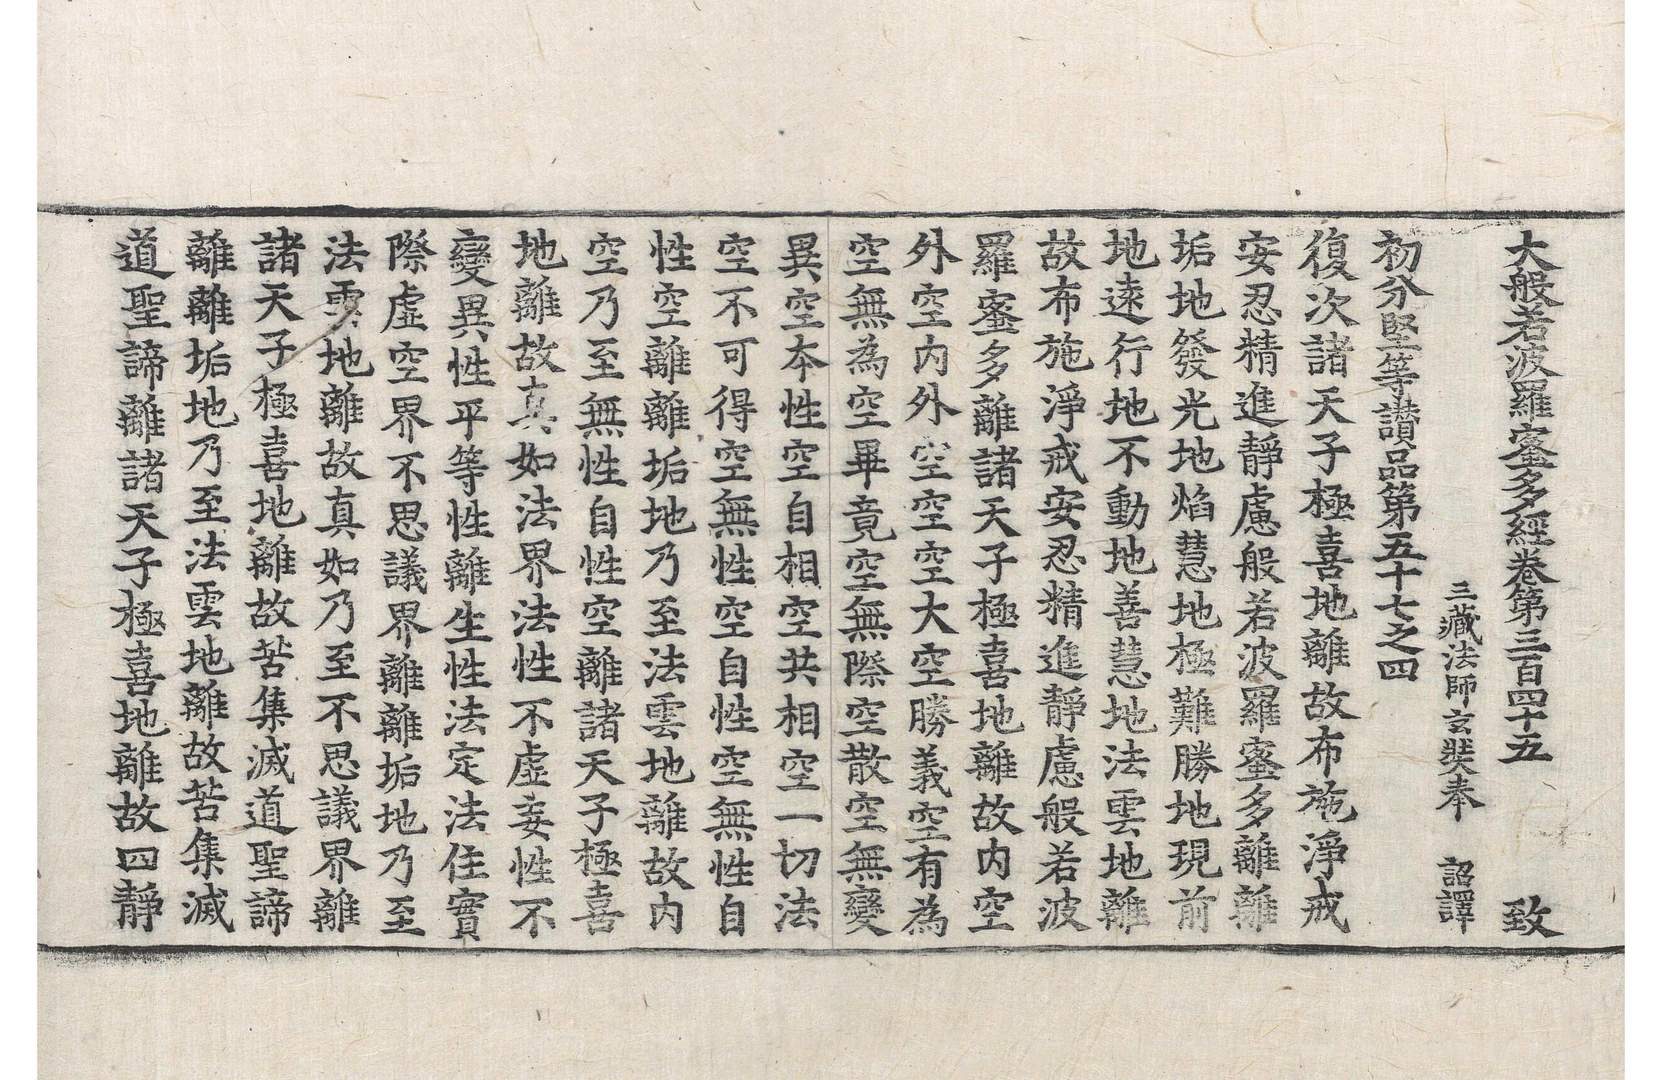 大般若波羅蜜多經卷第三百四十五　致
三藏法師玄奘奉　詔譯
初分堅等讃品第五十七之四
復次諸天子極喜地離故布施淨戒
安忍精進靜慮般若波羅蜜多離離
垢地發光地焰慧地極難勝地現前
地遠行地不動地善慧地法雲地離
故布施淨戒安忍精進靜慮般若波
羅蜜多離諸天子極喜地離故内空
外空内外空空空大空勝義空有為
空無為空畢竟空無際空散空無變
異空本性空自相空共相空一切法
空不可得空無性空自性空無性自
性空離離垢地乃至法雲地離故内
空乃至無性自性空離諸天子極喜
地離故真如法界法性不虛妄性不
變異性平等性離生性法定法住實
際虛空界不思議界離離垢地乃至
法雲地離故真如乃至不思議界離
諸天子極喜地離故苦集滅道聖諦
離離垢地乃至法雲地離故苦集滅
道聖諦離諸天子極喜地離故四靜